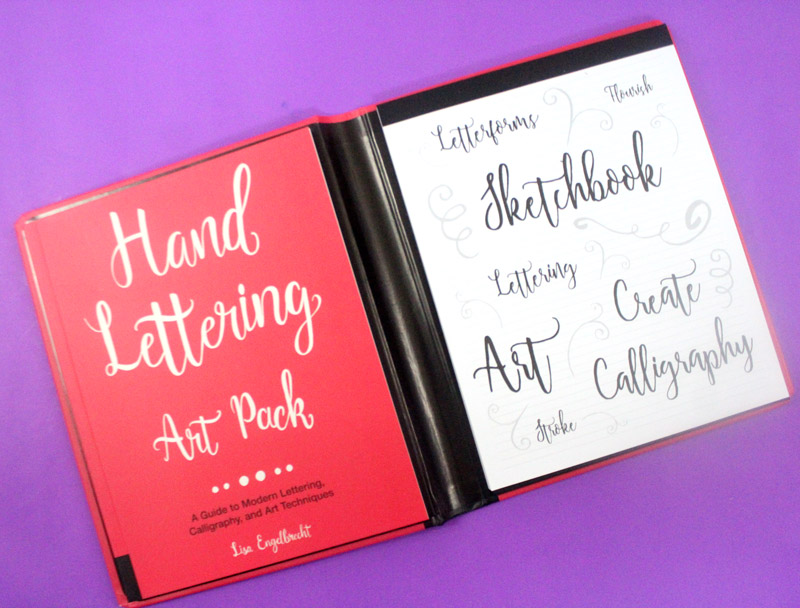 Hand
Lettering
Art Pack
A Guide to Modern Lettering,
Calligraphy, and Art Techniques
Lisa Engelbrecht
Flourish
Letterforms
Sketchbook
Lettering
Create
Art
Calligraphy
Stroke